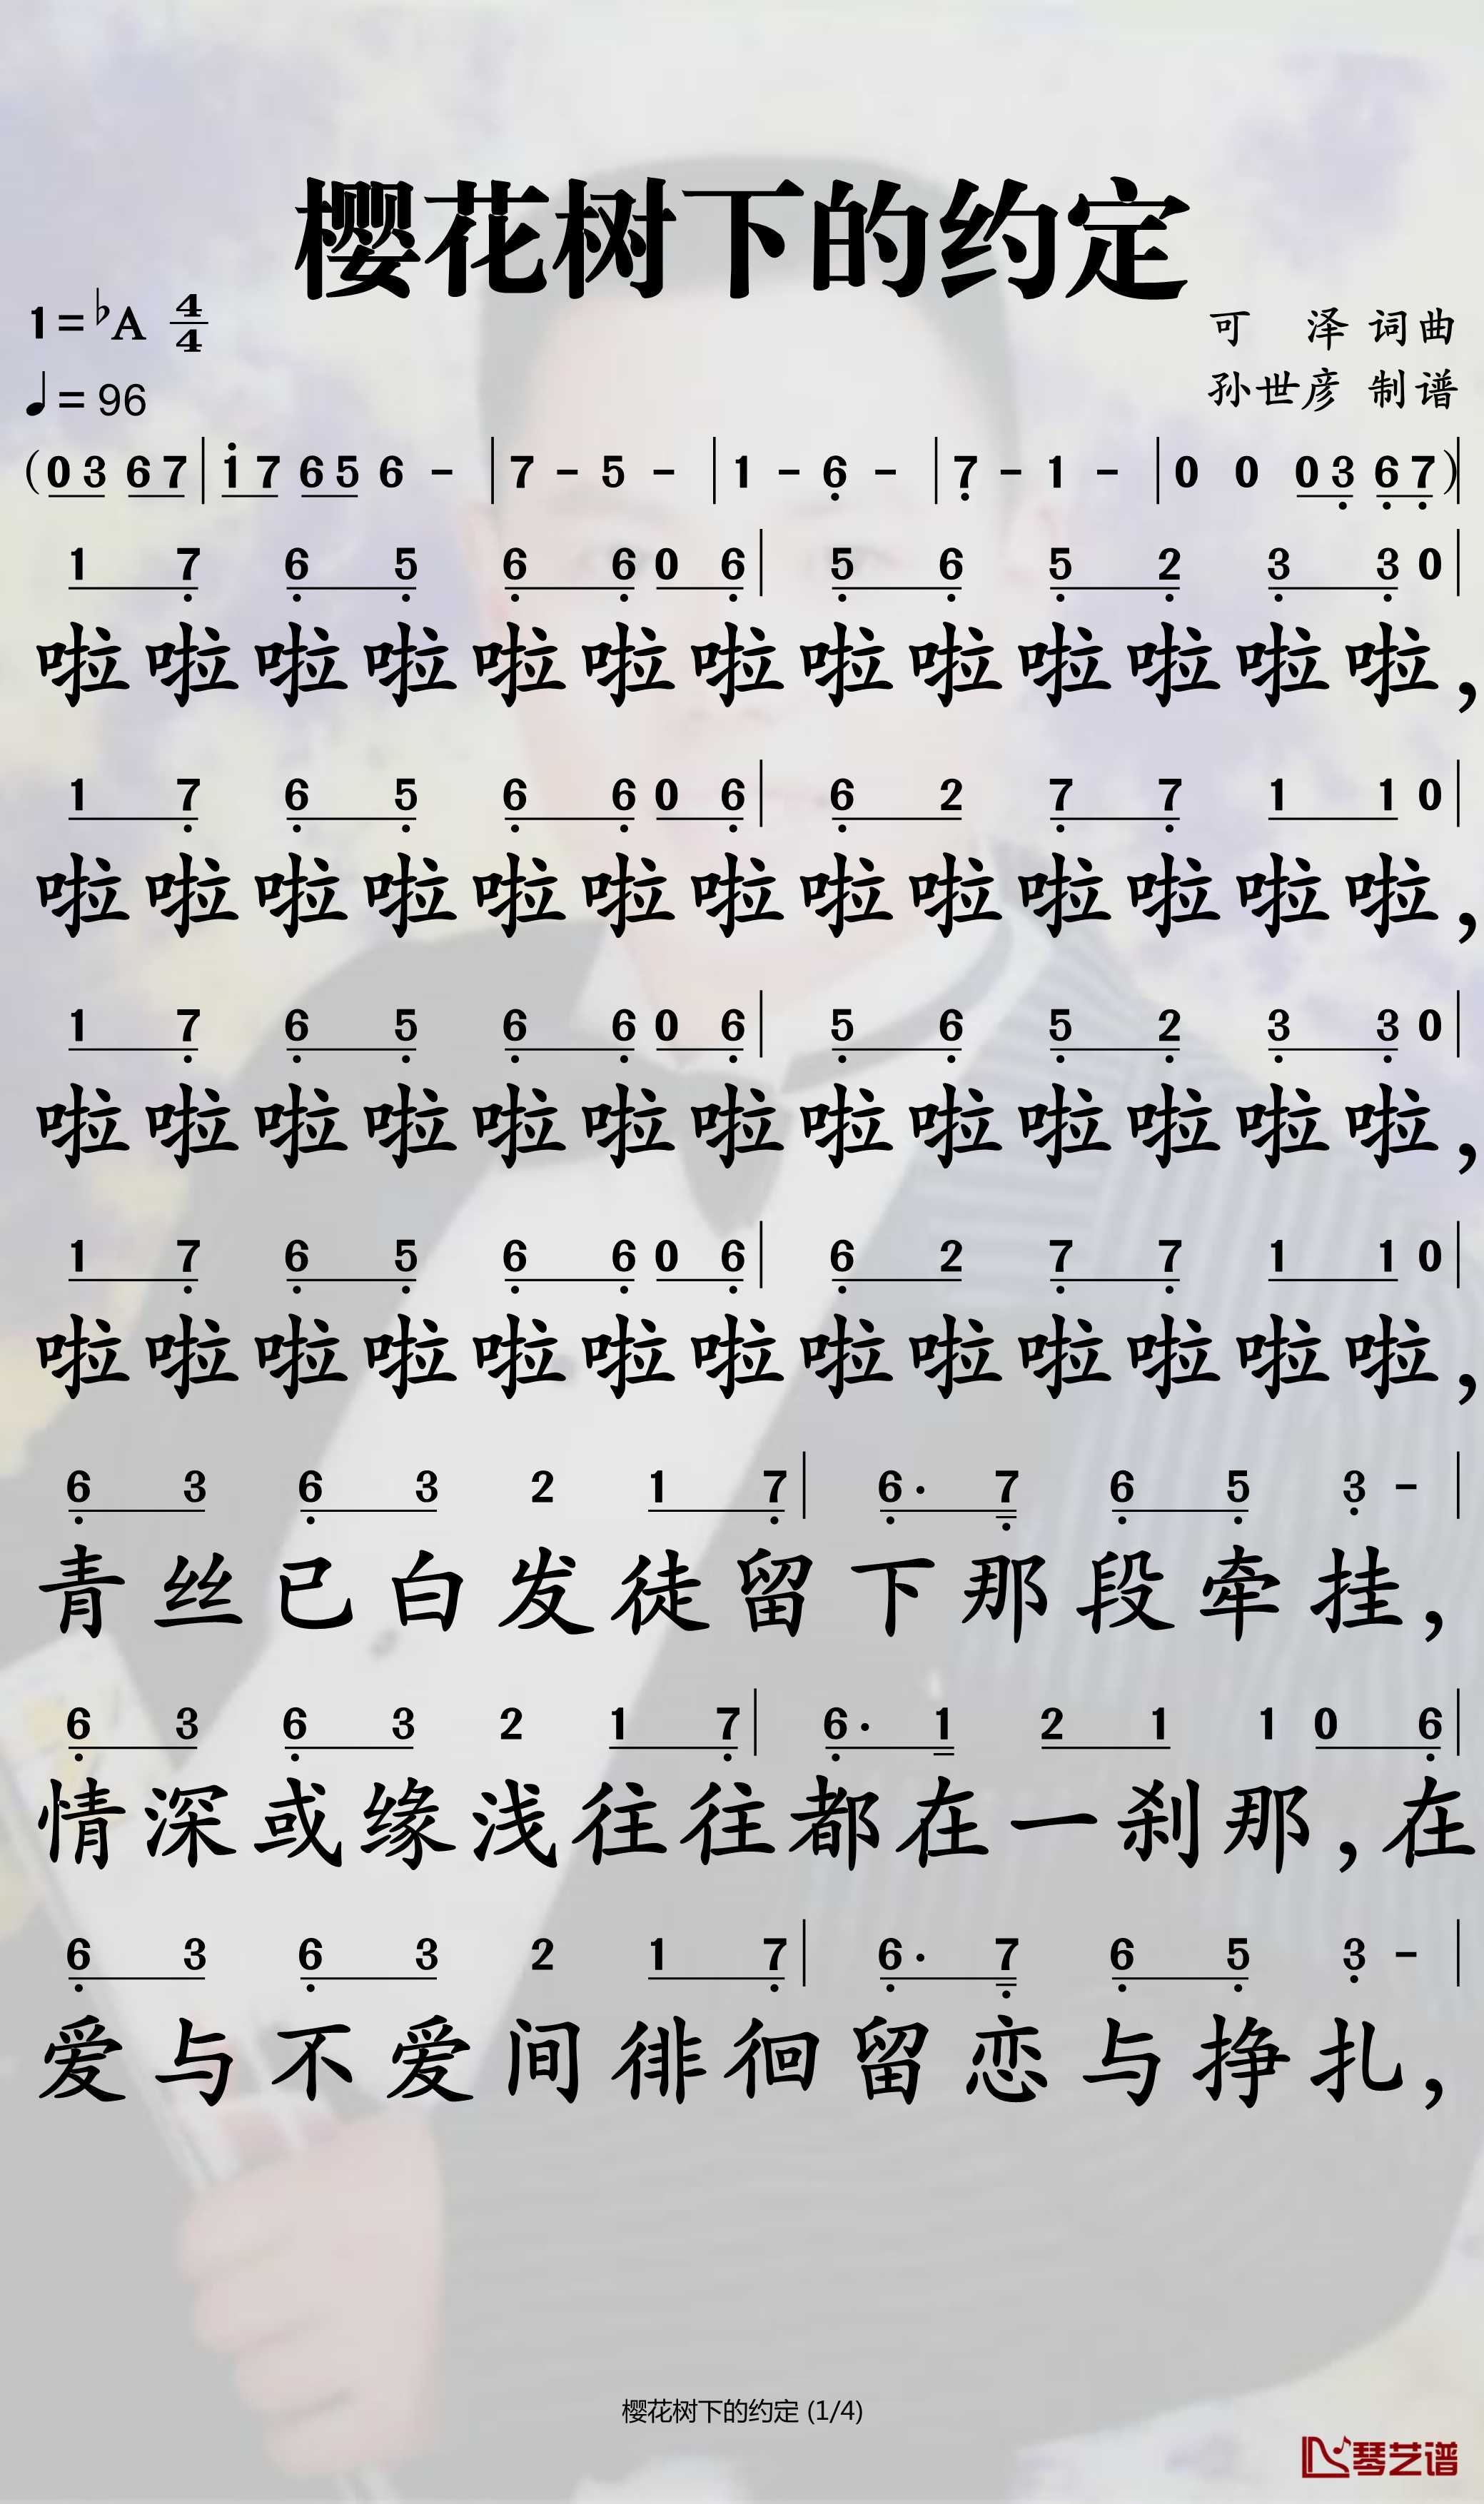 樱花树下的约定
1=♭A 4/4
可 泽 词曲
♩=96
孙世彦 制谱
(0 3 6 7 | 1 7 6 5 6 - | 7 - 5 - | 1 - 6 - | 7 - 1 - | 0 0 0 3 6 7) |
1 7 6 5 6 6 0 6 | 5 6 5 2 3 3 0 |
啦啦啦啦啦啦啦啦啦啦啦啦啦，
1 7 6 5 6 6 0 6 | 6 2 7 7 1 1 0 |
啦啦啦啦啦啦啦啦啦啦啦啦啦，
1 7 6 5 6 6 0 6 | 5 6 5 2 3 3 0 |
啦啦啦啦啦啦啦啦啦啦啦啦啦，
1 7 6 5 6 6 0 6 | 6 2 7 7 1 1 0 |
啦啦啦啦啦啦啦啦啦啦啦啦啦，
6 3 6 3 2 1 7 | 6· 7 6 5 3 - |
青丝已白发徒留下那段牵挂，
6 3 6 3 2 1 7 | 6· 1 2 1 1 0 6 |
情深或缘浅往往都在一刹那，在
6 3 6 3 2 1 7 | 6· 7 6 5 3 - |
爱与不爱间徘徊留恋与挣扎，
樱花树下的约定 (1/4)
琴艺谱